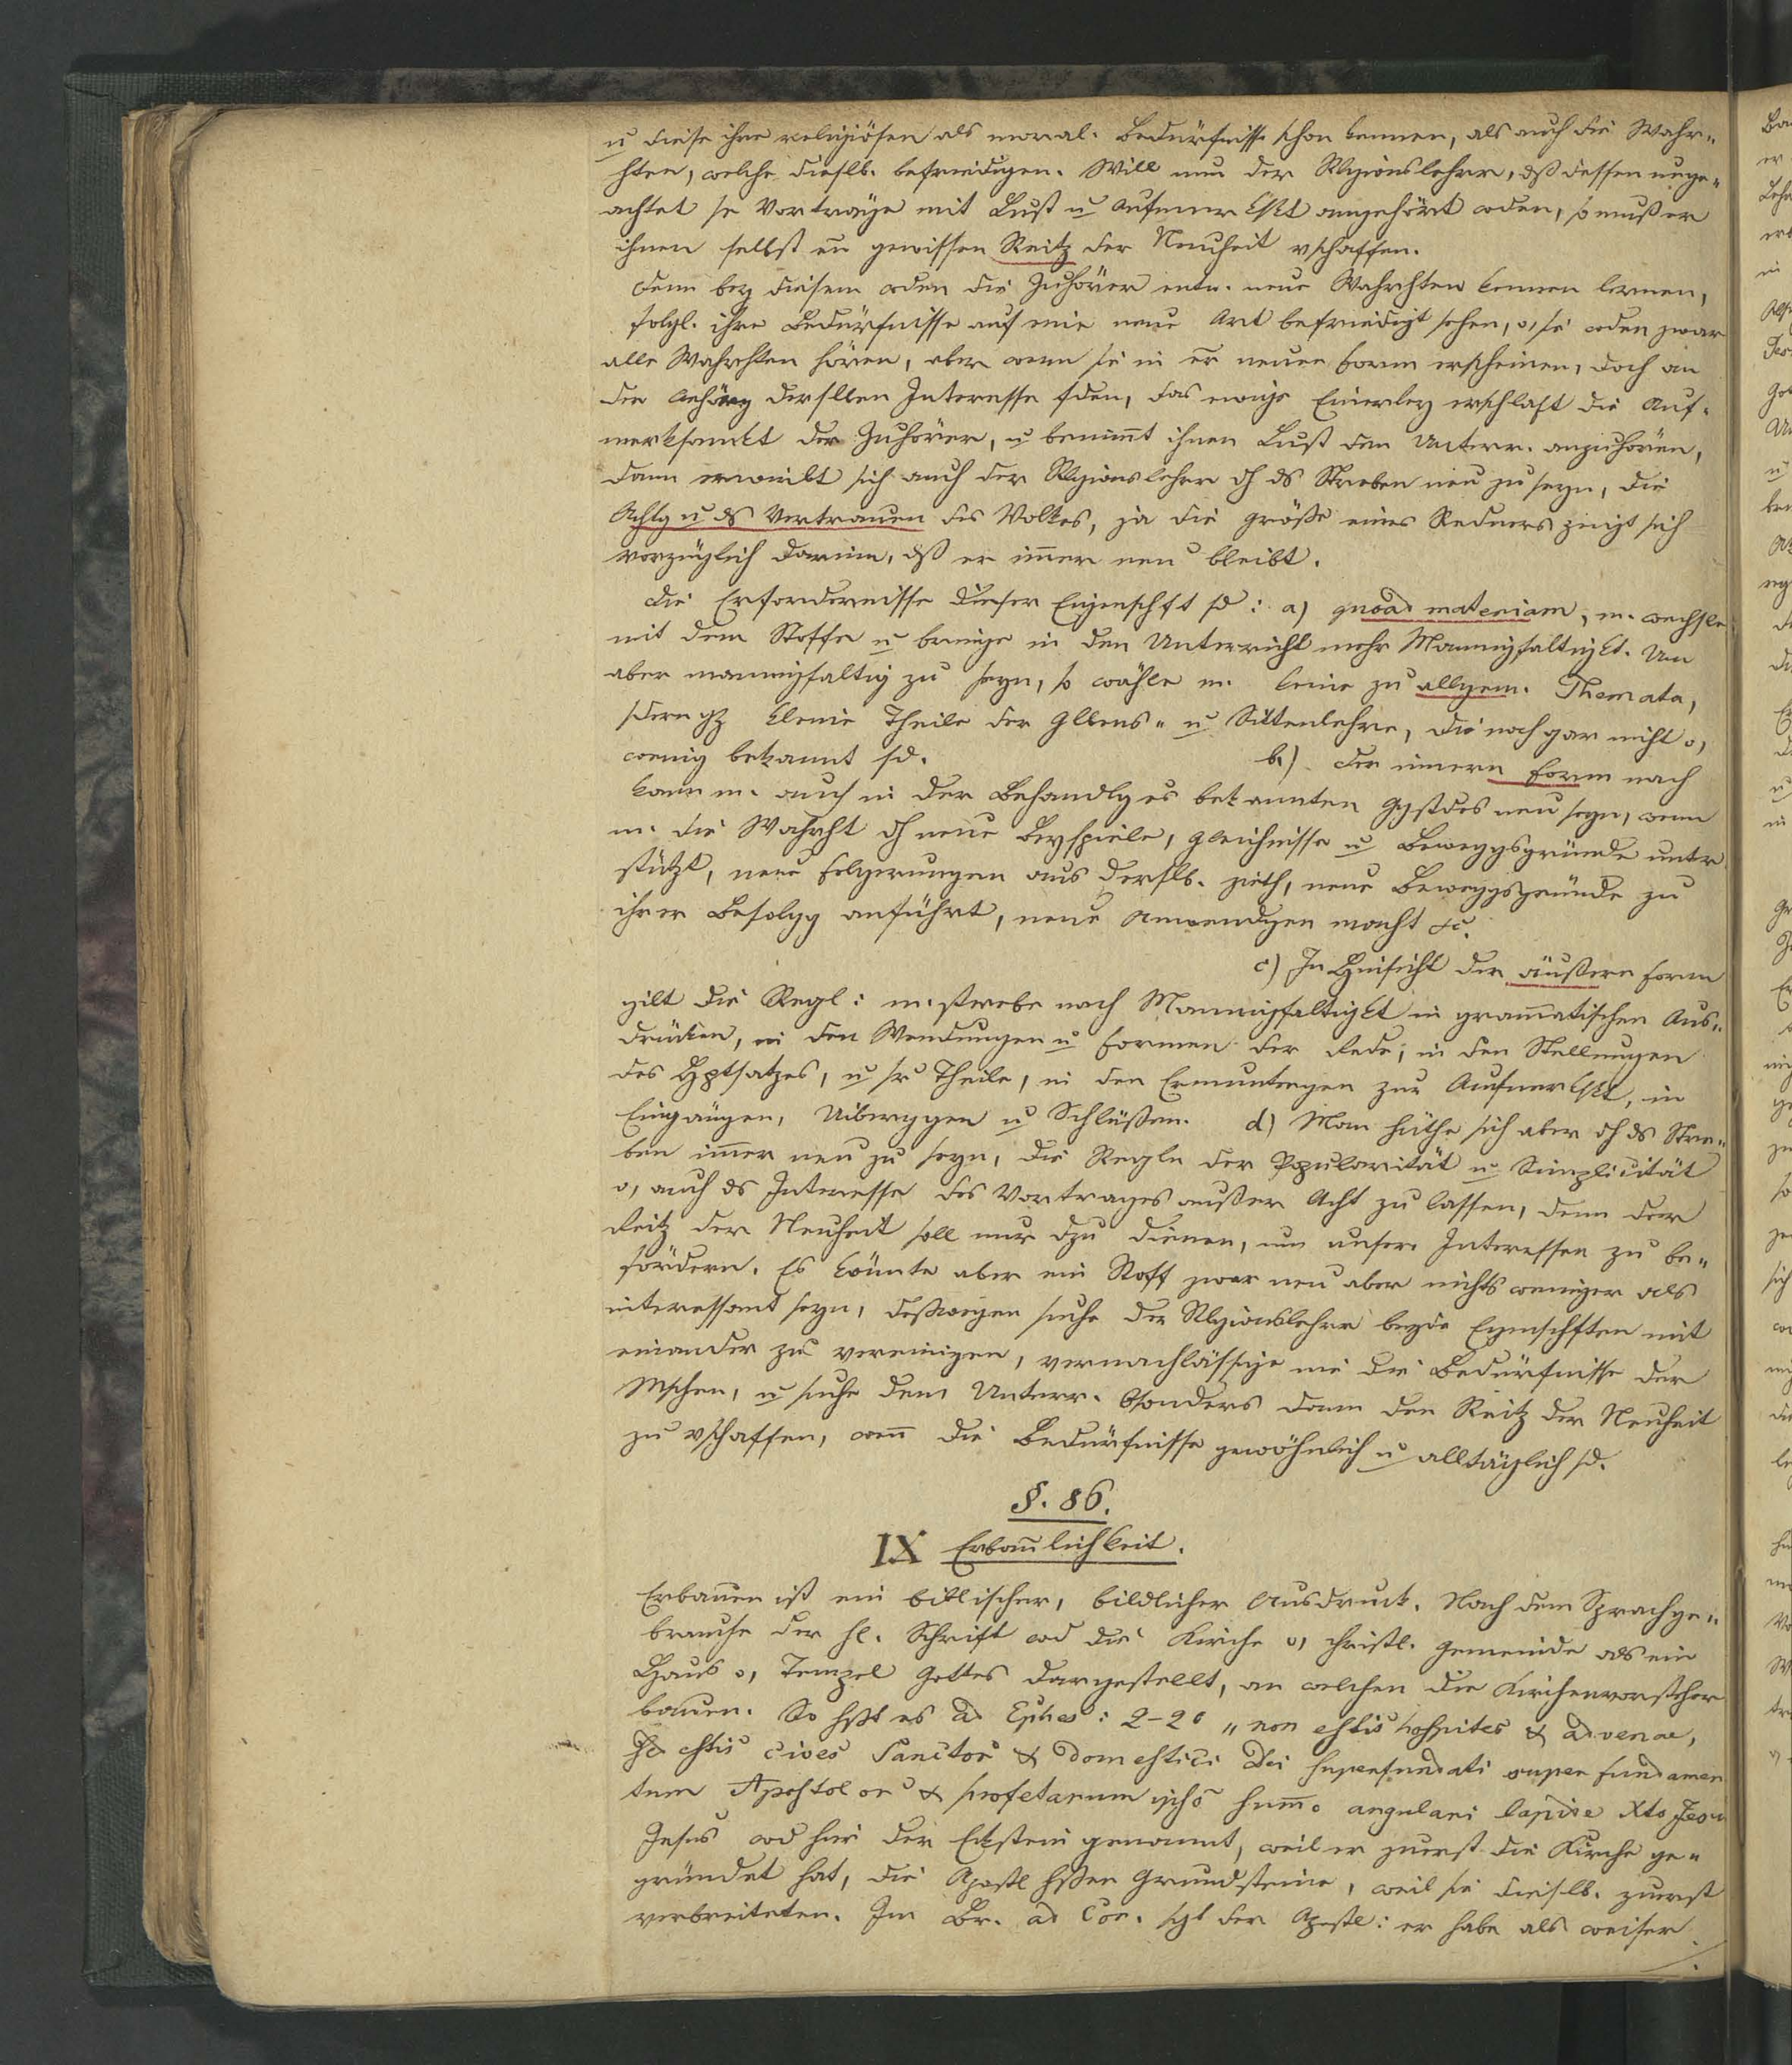 u diese ihre religiösen als moral. Bedürfnisse schon kennen, als auch die Wahr„
hten, welche dieslb. befriedigen. Will nun der Rlgionslehrer, dß dessen unge„
achtet se Vorträge mit Lust u Aufmerksktt angehört wden, so muß er
ihnen selbst en gewissen Reitz der Neuheit vschaffen.
Denn bey diesem wden die Zuhörer entw. neue Wahrhten kennen lernen,
folgl. ihre Bedürfnisse auf eine neue Art befriedigt sehen, o, sie wden zwar
alte Wahrhten hören, aber wenn sie in er neuen Form erscheinen, doch an
der Anhörg derslben Interesse fden, das ewige Einerley erschlaft die Auf-
merksamkt der Zuhörer, u benimmt ihnen Lust den Unterr. anzuhören,
dann erwirbt sich auch der Rlgionslehrer dh ds Streben neu zu seyn, die
Achtg u ds Vertrauen des Volkes, ja die größe eines Redners zeigt sich
vorzüglich darinn, dß er im̄er neu bleibt.
Die Erfordernisse dieser Eigenschft sd: a) quoad materiam, m. wechsle
mit dem Stoffe u bringe in den Unterricht mehr Mannigfaltigkt. Um
aber mannigfaltig zu seyn, so wähle m. keine zu allgem. Themata,
sdern gz kleine Theile der Glbens- u Sittenlehre, die noch gar nicht o,
wenig bekannt sd. b.) Der innern Form nach
kann m. auch in der Behandlg es bekannten Ggstdes neu seyn, wenn
m. die Wahrht dh neue Beyspiele, Gleichnisse u Beweggsgründe unter
stützt, neue Folgerungen aus derslb. zieht, neue Beweggsgründe zu
ihrer Befolgg anführt, neue Anwendgen macht &c.
c) In Hinsicht der äußern Form
gilt die Regl: m. strebe nach Mannigfaltigkt in gram̄atischen Aus„
drücken, in den Wendungen u Formen der Rede, in den Stellungen
des Hptsatzes, u sr Theile, in den Ermuntergen zur Aufmerkskt, in
Eingängen, Uiberggen u Schlüßen. d) Man hüthe sich aber dh ds Stre„
ben im̄er neu zu seyn, die Regln der Popularität u Simplicität
o, auch ds Interesse des Vortrages außer Acht zu lassen, denn der
Reitz der Neuheit soll nur dzu dienen, um unser Interessen zu be„
fördern. Es könnte aber ein Stoff zwar neu aber nichts weniger als
interessant seyn, deßwegen suche der Rlgionslehrer beyde Eigenschften mit
einander zu vereinigen, vernachlässige nie die Bedürfnisse der
Mschen, u suche dem Unterr. bsonders dann den Reitz der Neuheit
zu vschaffen, wen̄ die Bedürfnisse gewöhnlich u alltäglich sd.
§. 86.
IX Erbaulichkeit.
Erbauen ist ein biblischer, bildlicher Ausdruck. Nach dem Sprachge„
brauche der hl. Schrift wd die Kirche o, christl. Gemeinde als ein
Haus o, Tempel Gottes dargestellt, an welchen die Kirchenvorsteher
bauen. So hßt es ad Ephes: 2-20 „non estis hospites & advenae,
sed estis cives Sanctor & domestici Dei superfundati super fundamen
tum Apostolor & profetarum ipso sum̄o angulari lapide Xto Jesu
Jesus wd hier der Eckstein genannt, weil er zuerst die Kirche ge„
gründet hat, die Apostl hßen Grundsteine, weil sie dieslb. zuerst
verbreiteten. Im Br. ad Cor. sgt der Apostl: er habe als weiser